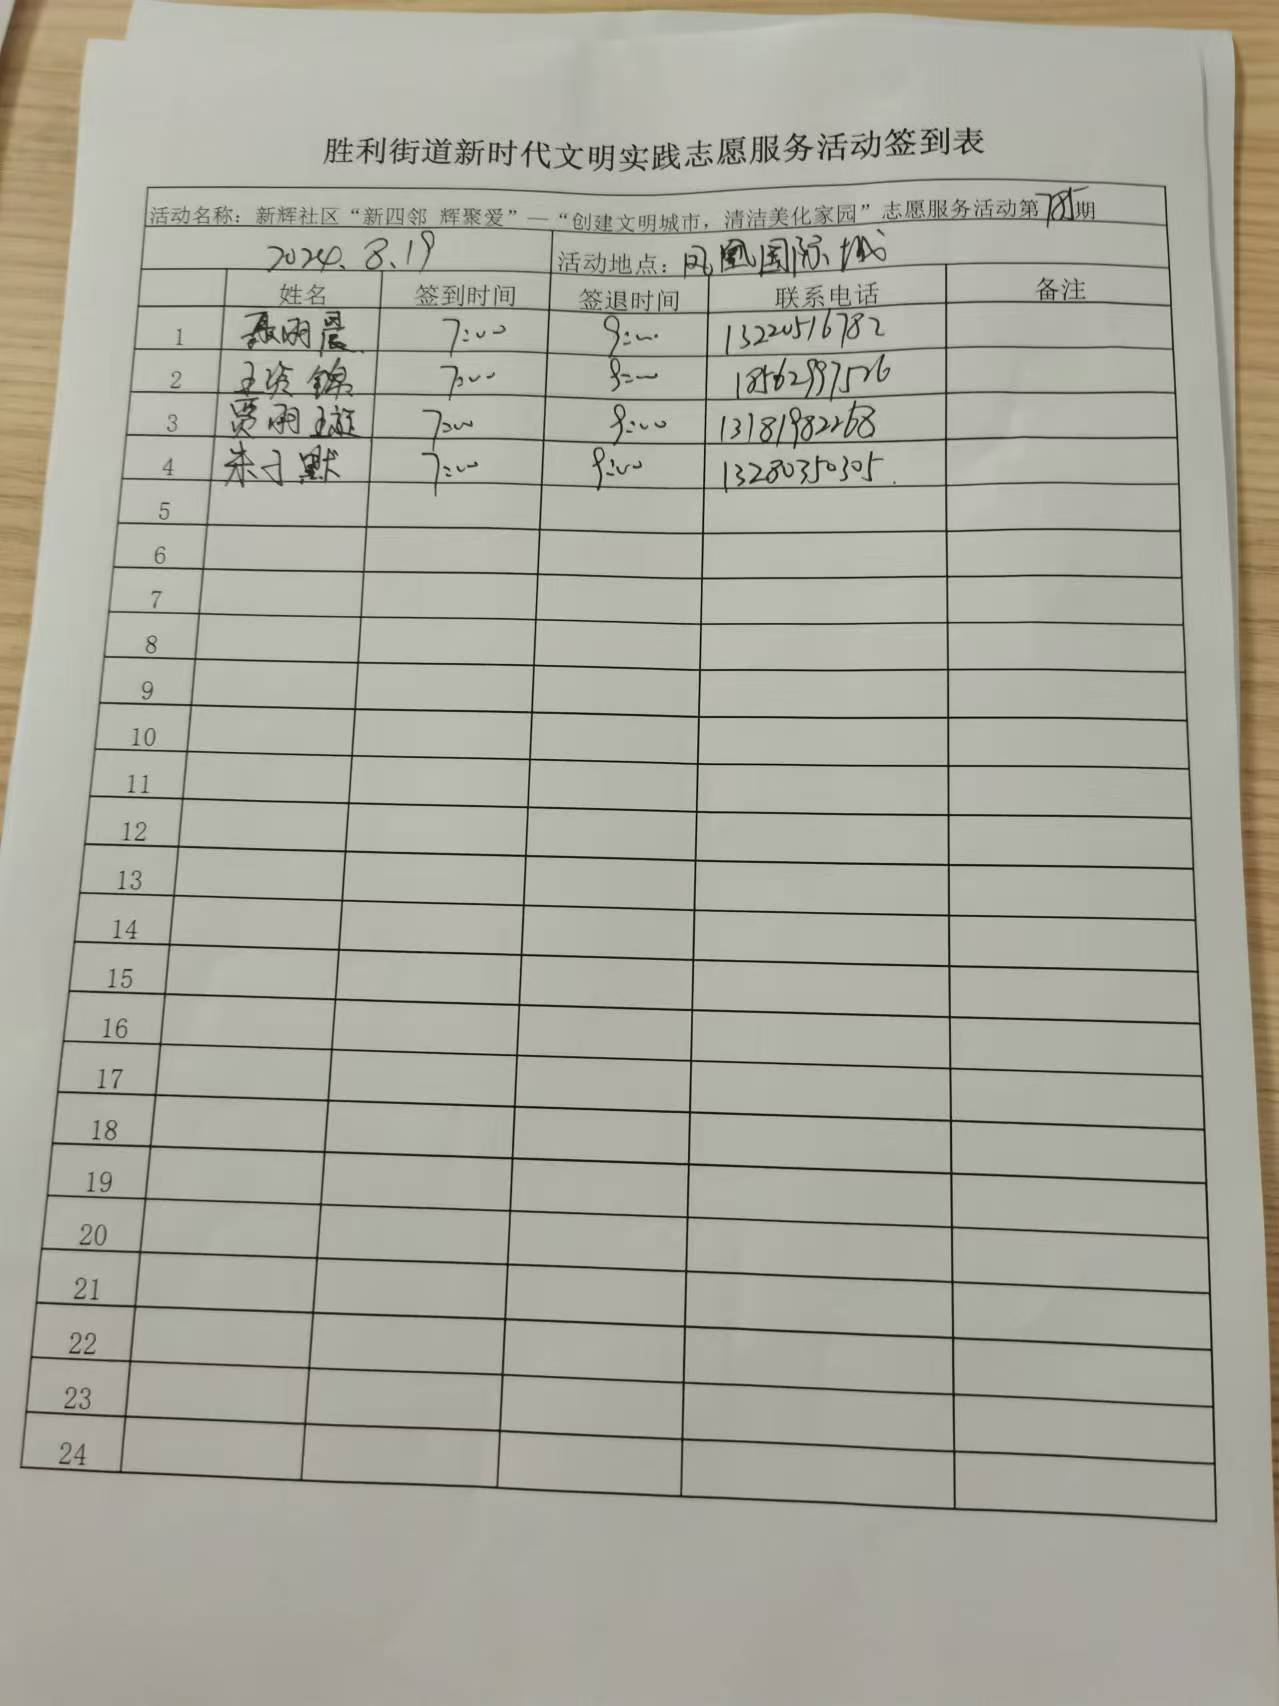 胜利街道新时代文明实践志愿服务活动签到表
活动名称：新辉社区“新四邻 辉聚爱”—“创建文明城市，清洁美化家园”志愿服务活动第785期
2024.8.19 活动地点：凤凰国际城
姓名 签到时间 签退时间 联系电话 备注
1 聂雨晨 7:00 9:00 13220516782
2 王资锦 7:00 9:00 18562997526
3 贾雨璇 7:00 9:00 13181982268
4 朱子默 7:00 9:00 13280350305
5
6
7
8
9
10
11
12
13
14
15
16
17
18
19
20
21
22
23
24